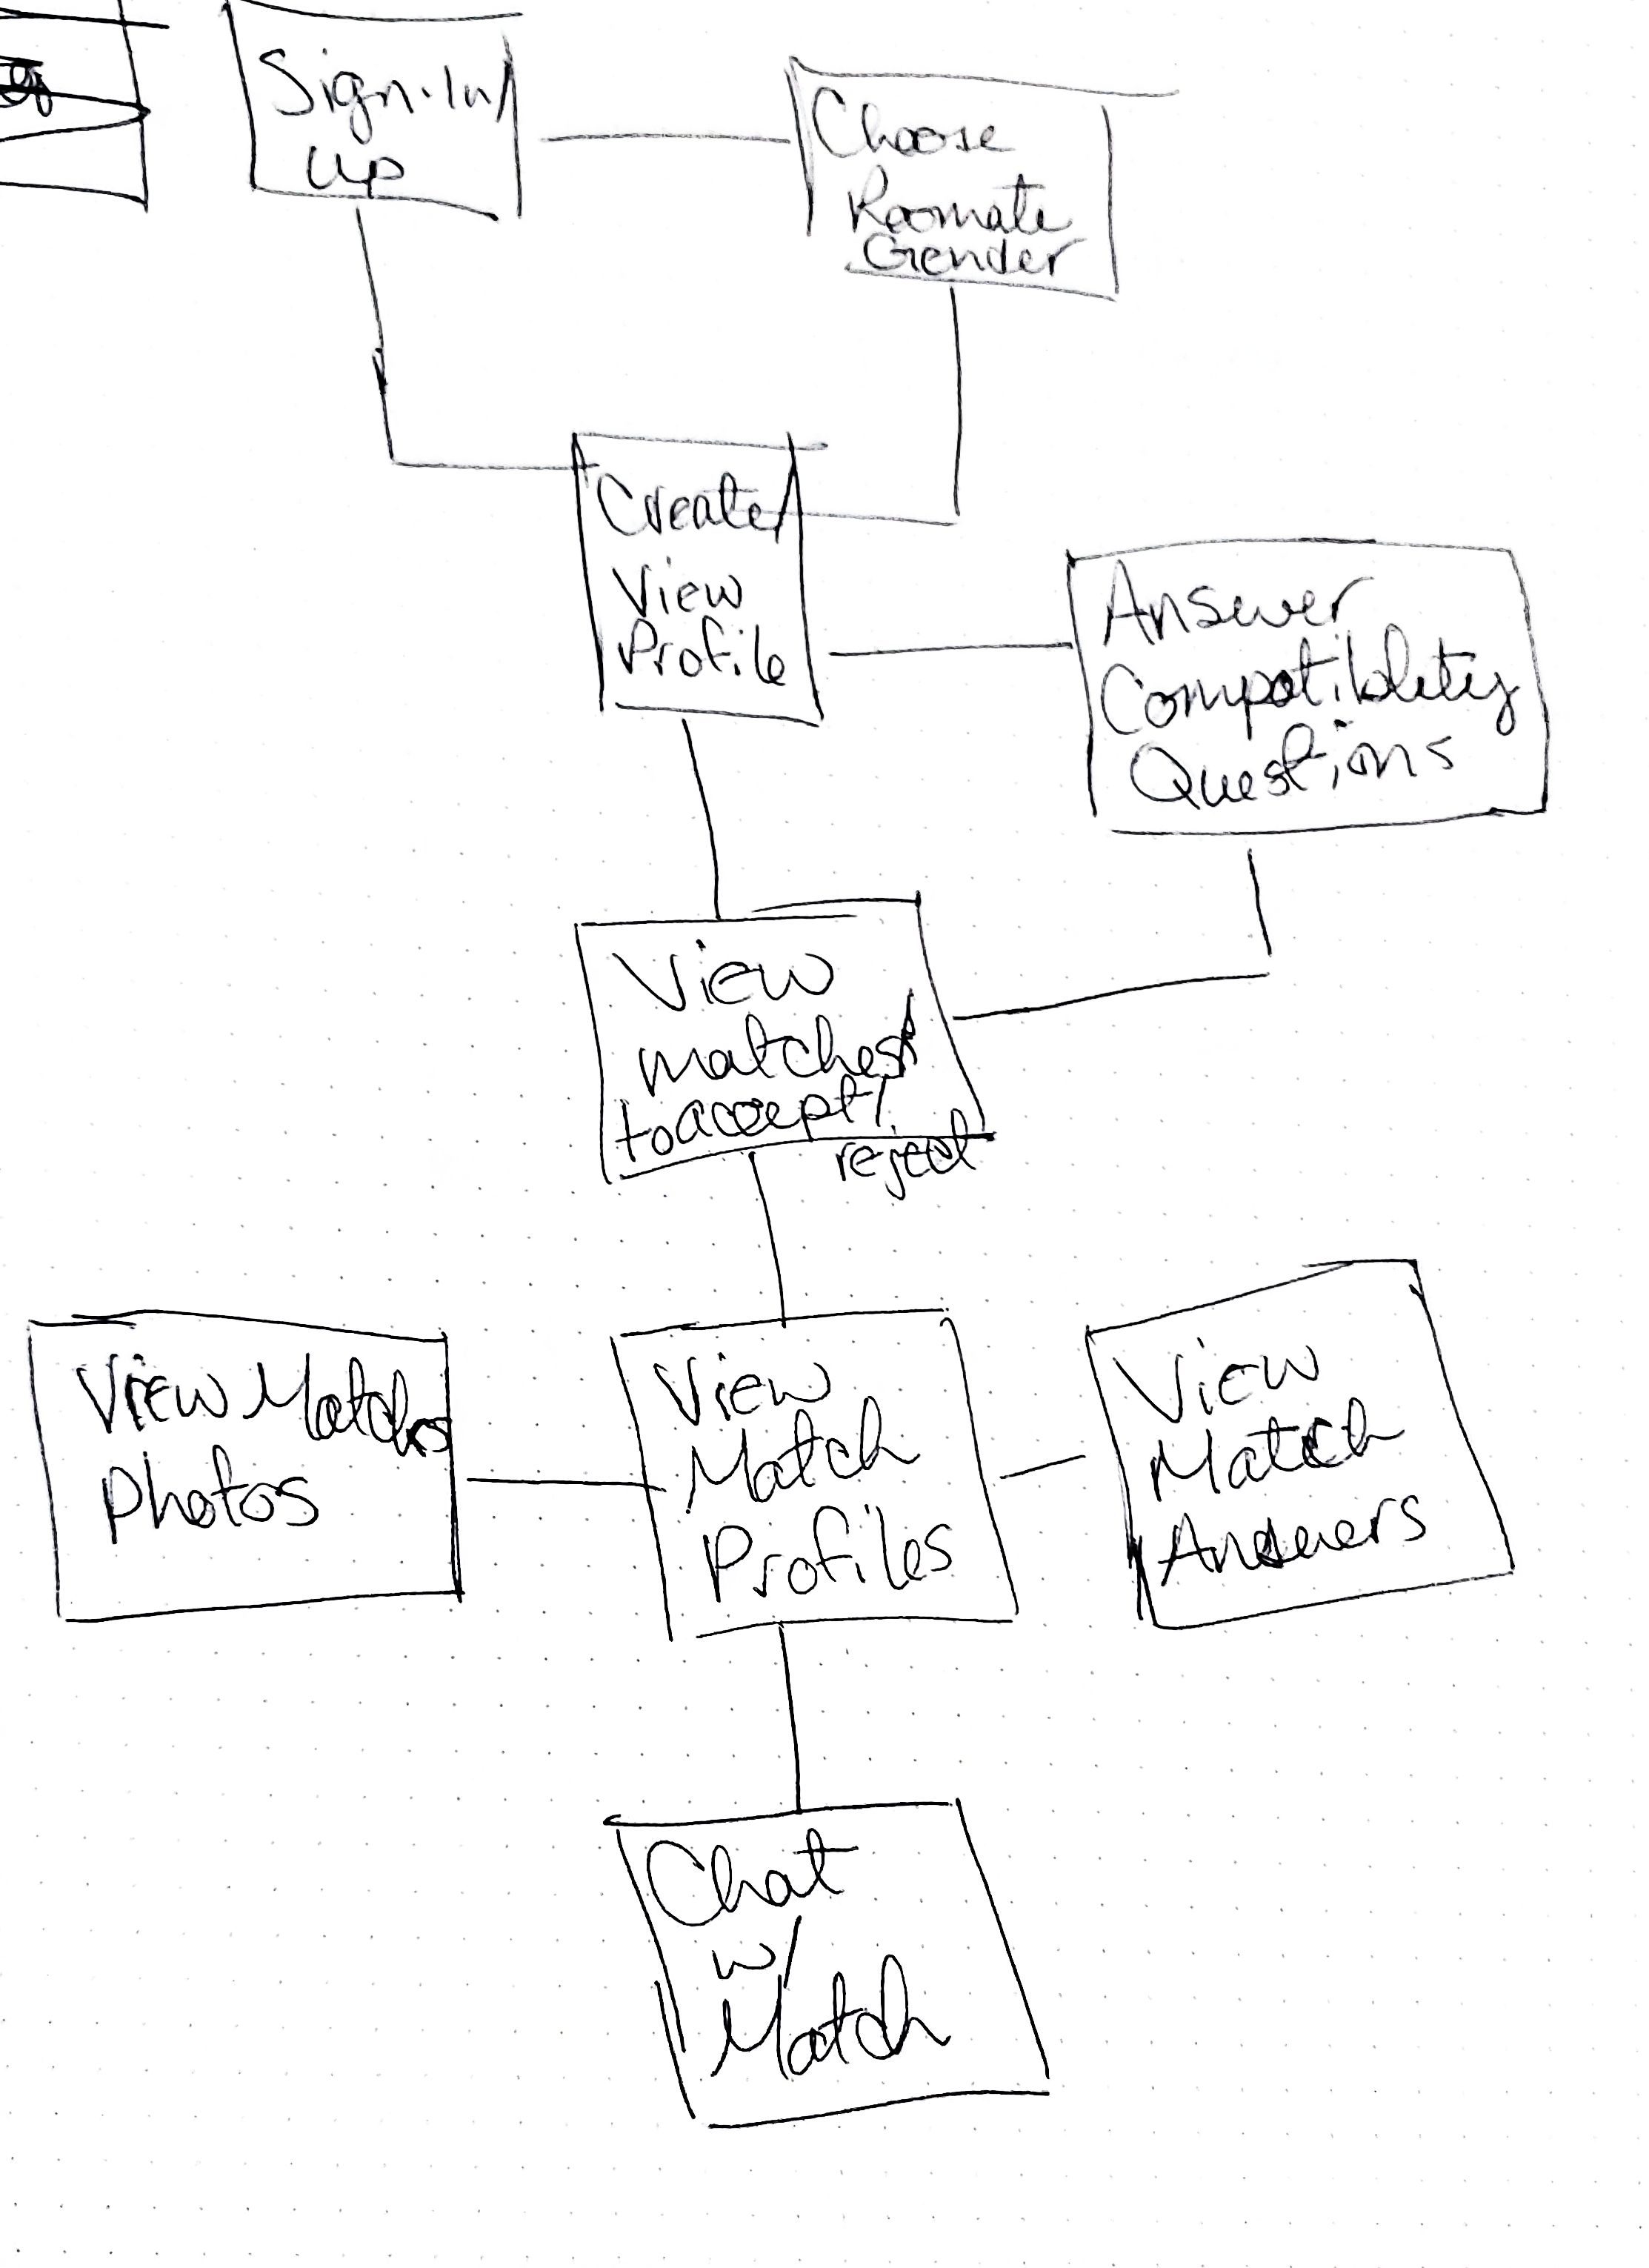 Sign-In/
Up
Choose
Roomate
Gender
Create/
View
Profile
Answer
Compatiblity
Questions
View
matches
to accept/
reject
View Matches
Photos
View
Match
Profiles
View
Match
Answers
Chat
w/
Match